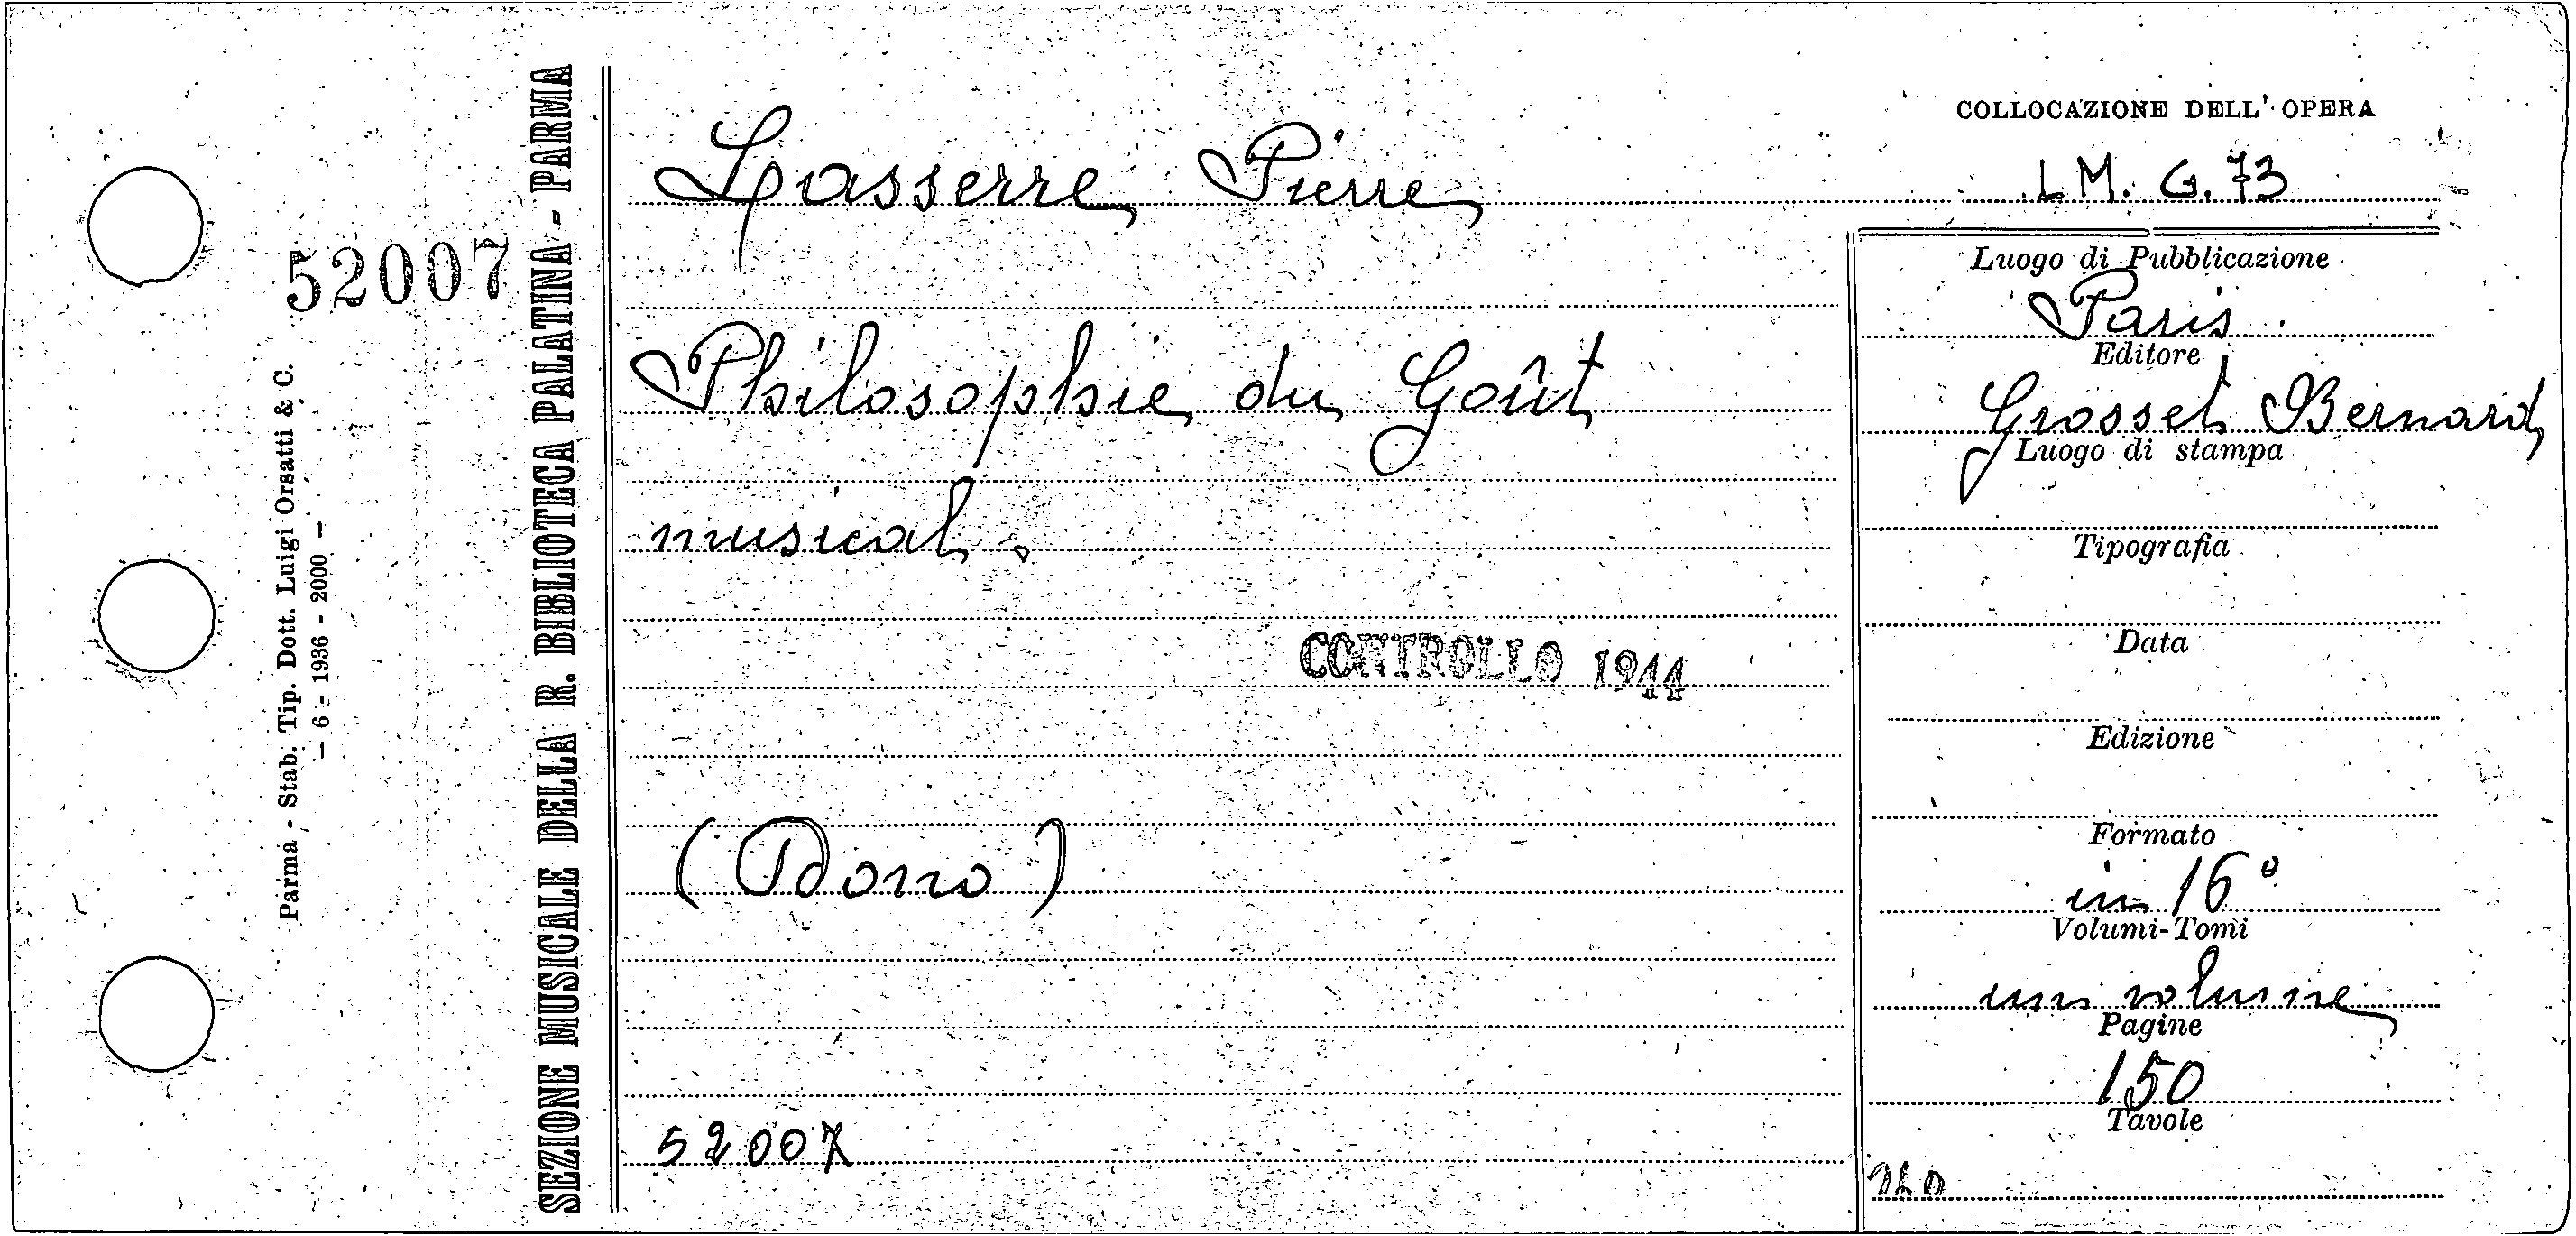 SEZIONE MUSICALE DELLA R. BIBLIOTECA PALATINA - PARMA
Parma - Stab. Tip. Dott. Luigi Orsatti & C.
— 6 - 1936 - 2000 —
52007
COLLOCAZIONE DELL' OPERA
L M. G. 73
Lasserre Pierre
Philosophie du Goût
musical.
CONTROLLO 1944
(Dono)
52007
Luogo di Pubblicazione
Paris
Editore
Grosset Bernard
Luogo di stampa
Tipografia
Data
Edizione
Formato
in 16°
Volumi-Tomi
un volume
Pagine
150
Tavole